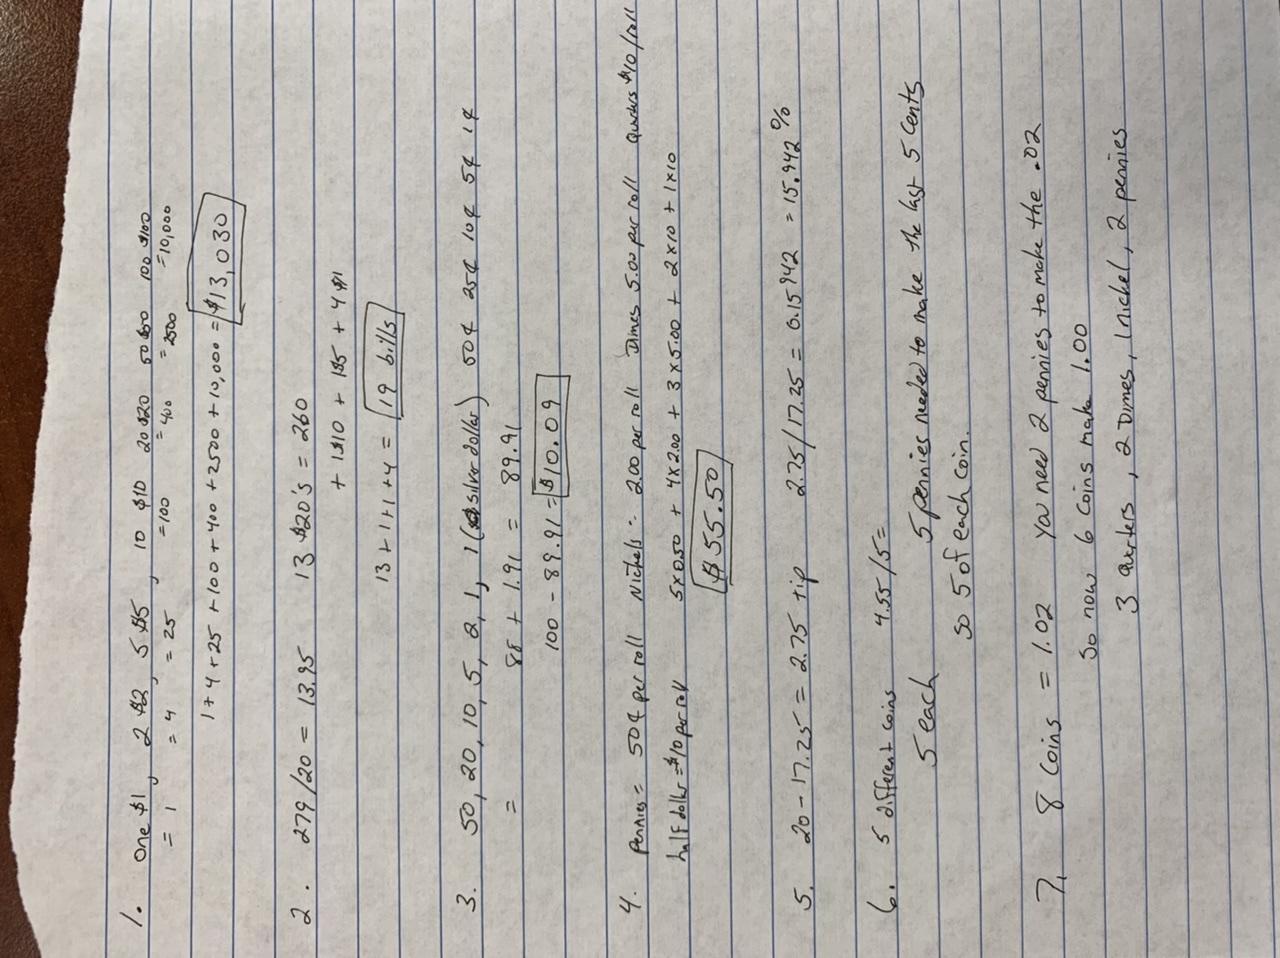 1. One $1, 2 $2, 5 $5, 10 $10 20 $20 50 $50 100 $100
= 1 = 4 = 25 = 100 = 400 = 2500 = 10,000
1 + 4 + 25 + 100 + 400 + 2500 + 10,000 = $13,030
2. 279/20 = 13.95 13 $20's = 260
+ 1 $10 + 1 $5 + 4 $1
13 + 1 + 1 + 4 = 19 bills
3. 50, 20, 10, 5, 2, 1, 1 (silver dollar) 50¢ 25¢ 10¢ 5¢ 1¢
= 88 + 1.91 = 89.91
100 - 89.91 = $10.09
4. Pennies = 50¢ per roll Nickels - 2.00 per roll Dimes 5.00 per roll Quarters $10/roll
half dollar = $10 per roll 5x0.50 + 4x2.00 + 3x5.00 + 2x10 + 1x10
$55.50
5. 20 - 17.25 = 2.75 tip 2.75/17.25 = 0.15942 = 15.942%
6. 5 different coins 4.55/5 =
5 each 5 pennies needed to make the last 5 cents
so 5 of each coin.
7. 8 coins = 1.02 you need 2 pennies to make the .02
So now 6 coins make 1.00
3 quarters, 2 Dimes, 1 nickel, 2 pennies